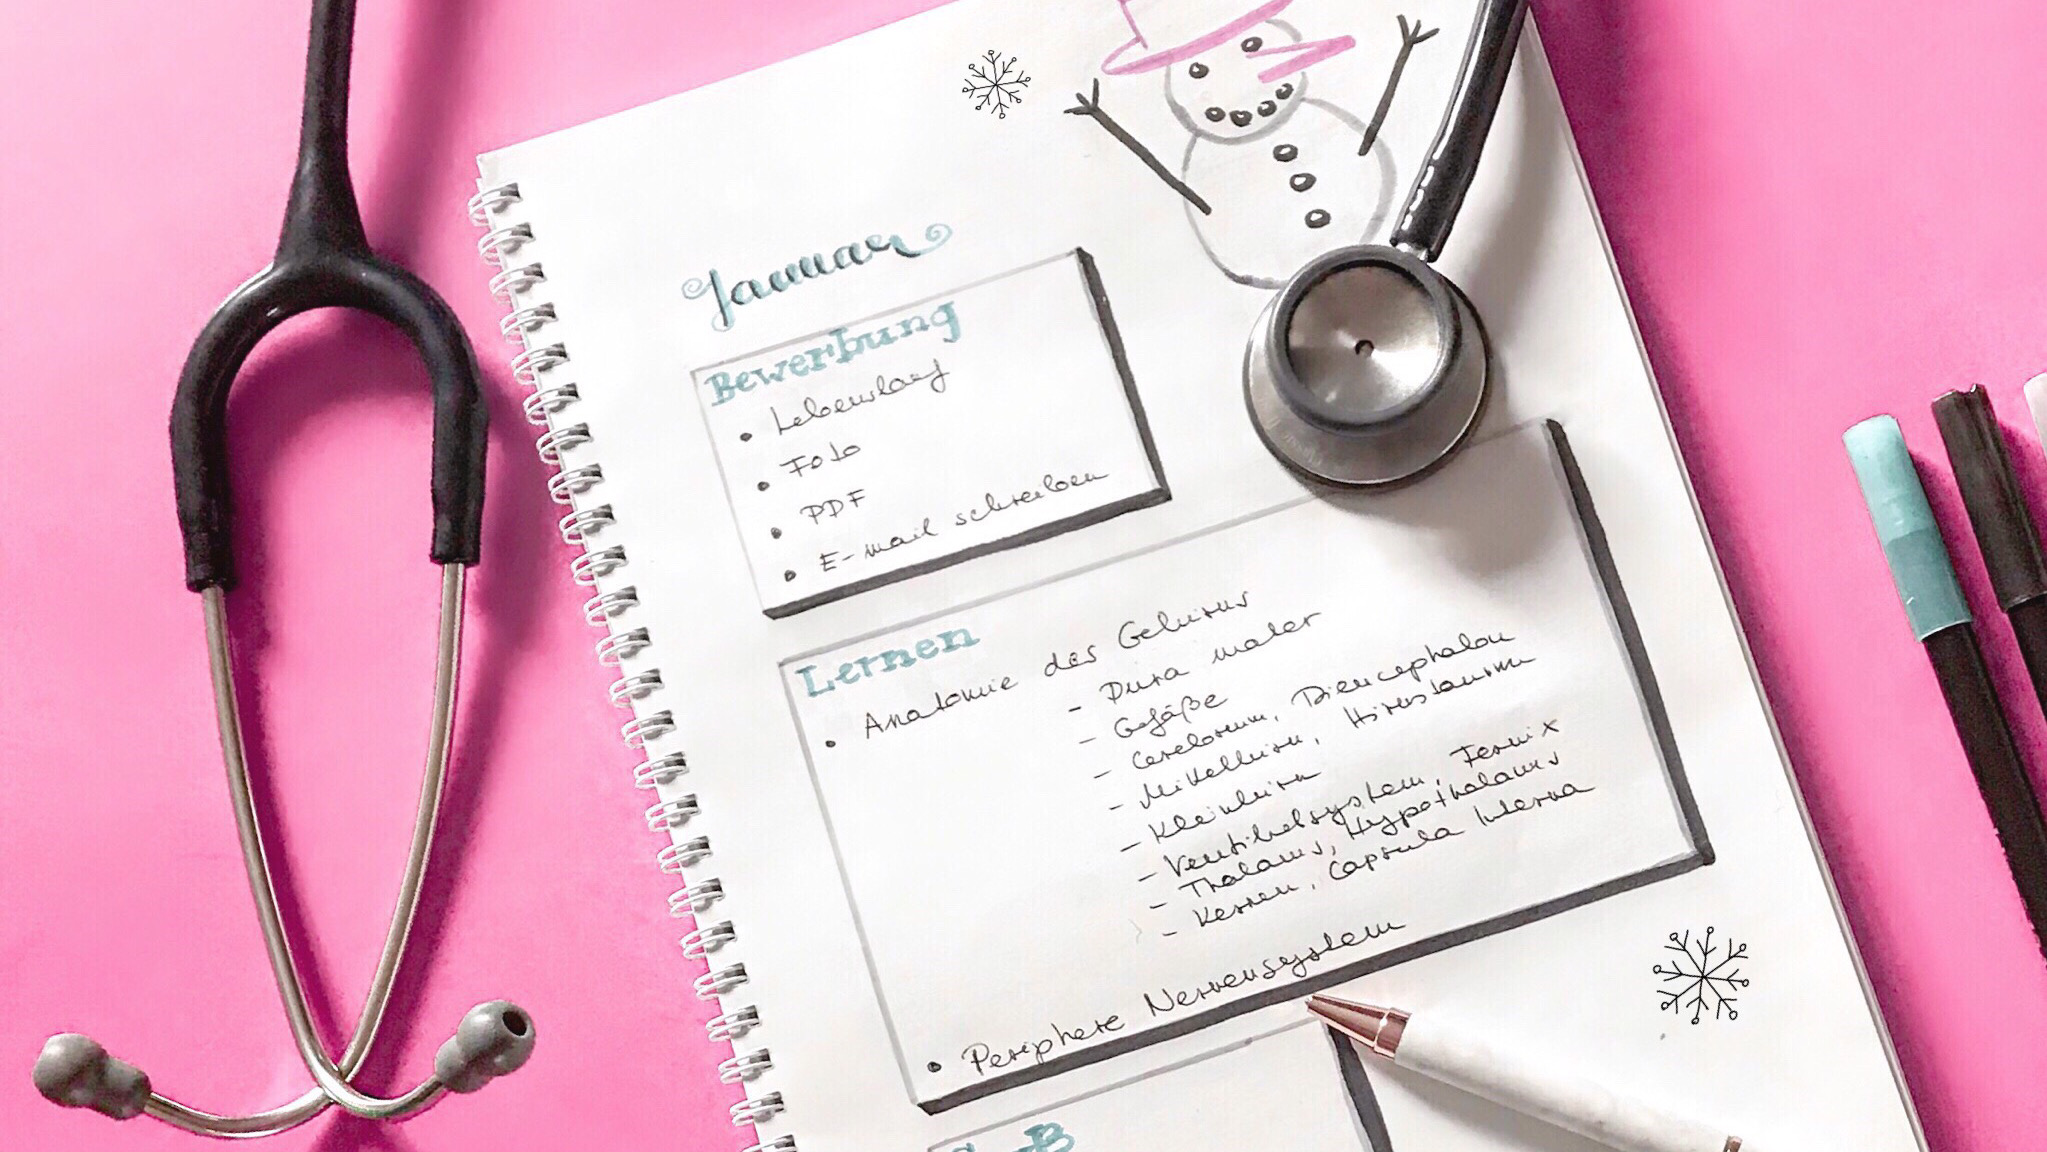 Januar
Bewerbung
• Lebenslauf
• Foto
• PDF
• E-mail schreiben
Lernen
• Anatomie des Gehirns
- Dura mater
- Gefäße
- Cerebrum, Diencephalon
- Mittelhirn, Hirnstamm
- Kleinhirn
- Ventrikelsystem, Fornix
- Thalamus, Hypothalamus
- Kernen, Capsula Interna
• Periphere Nervensystem